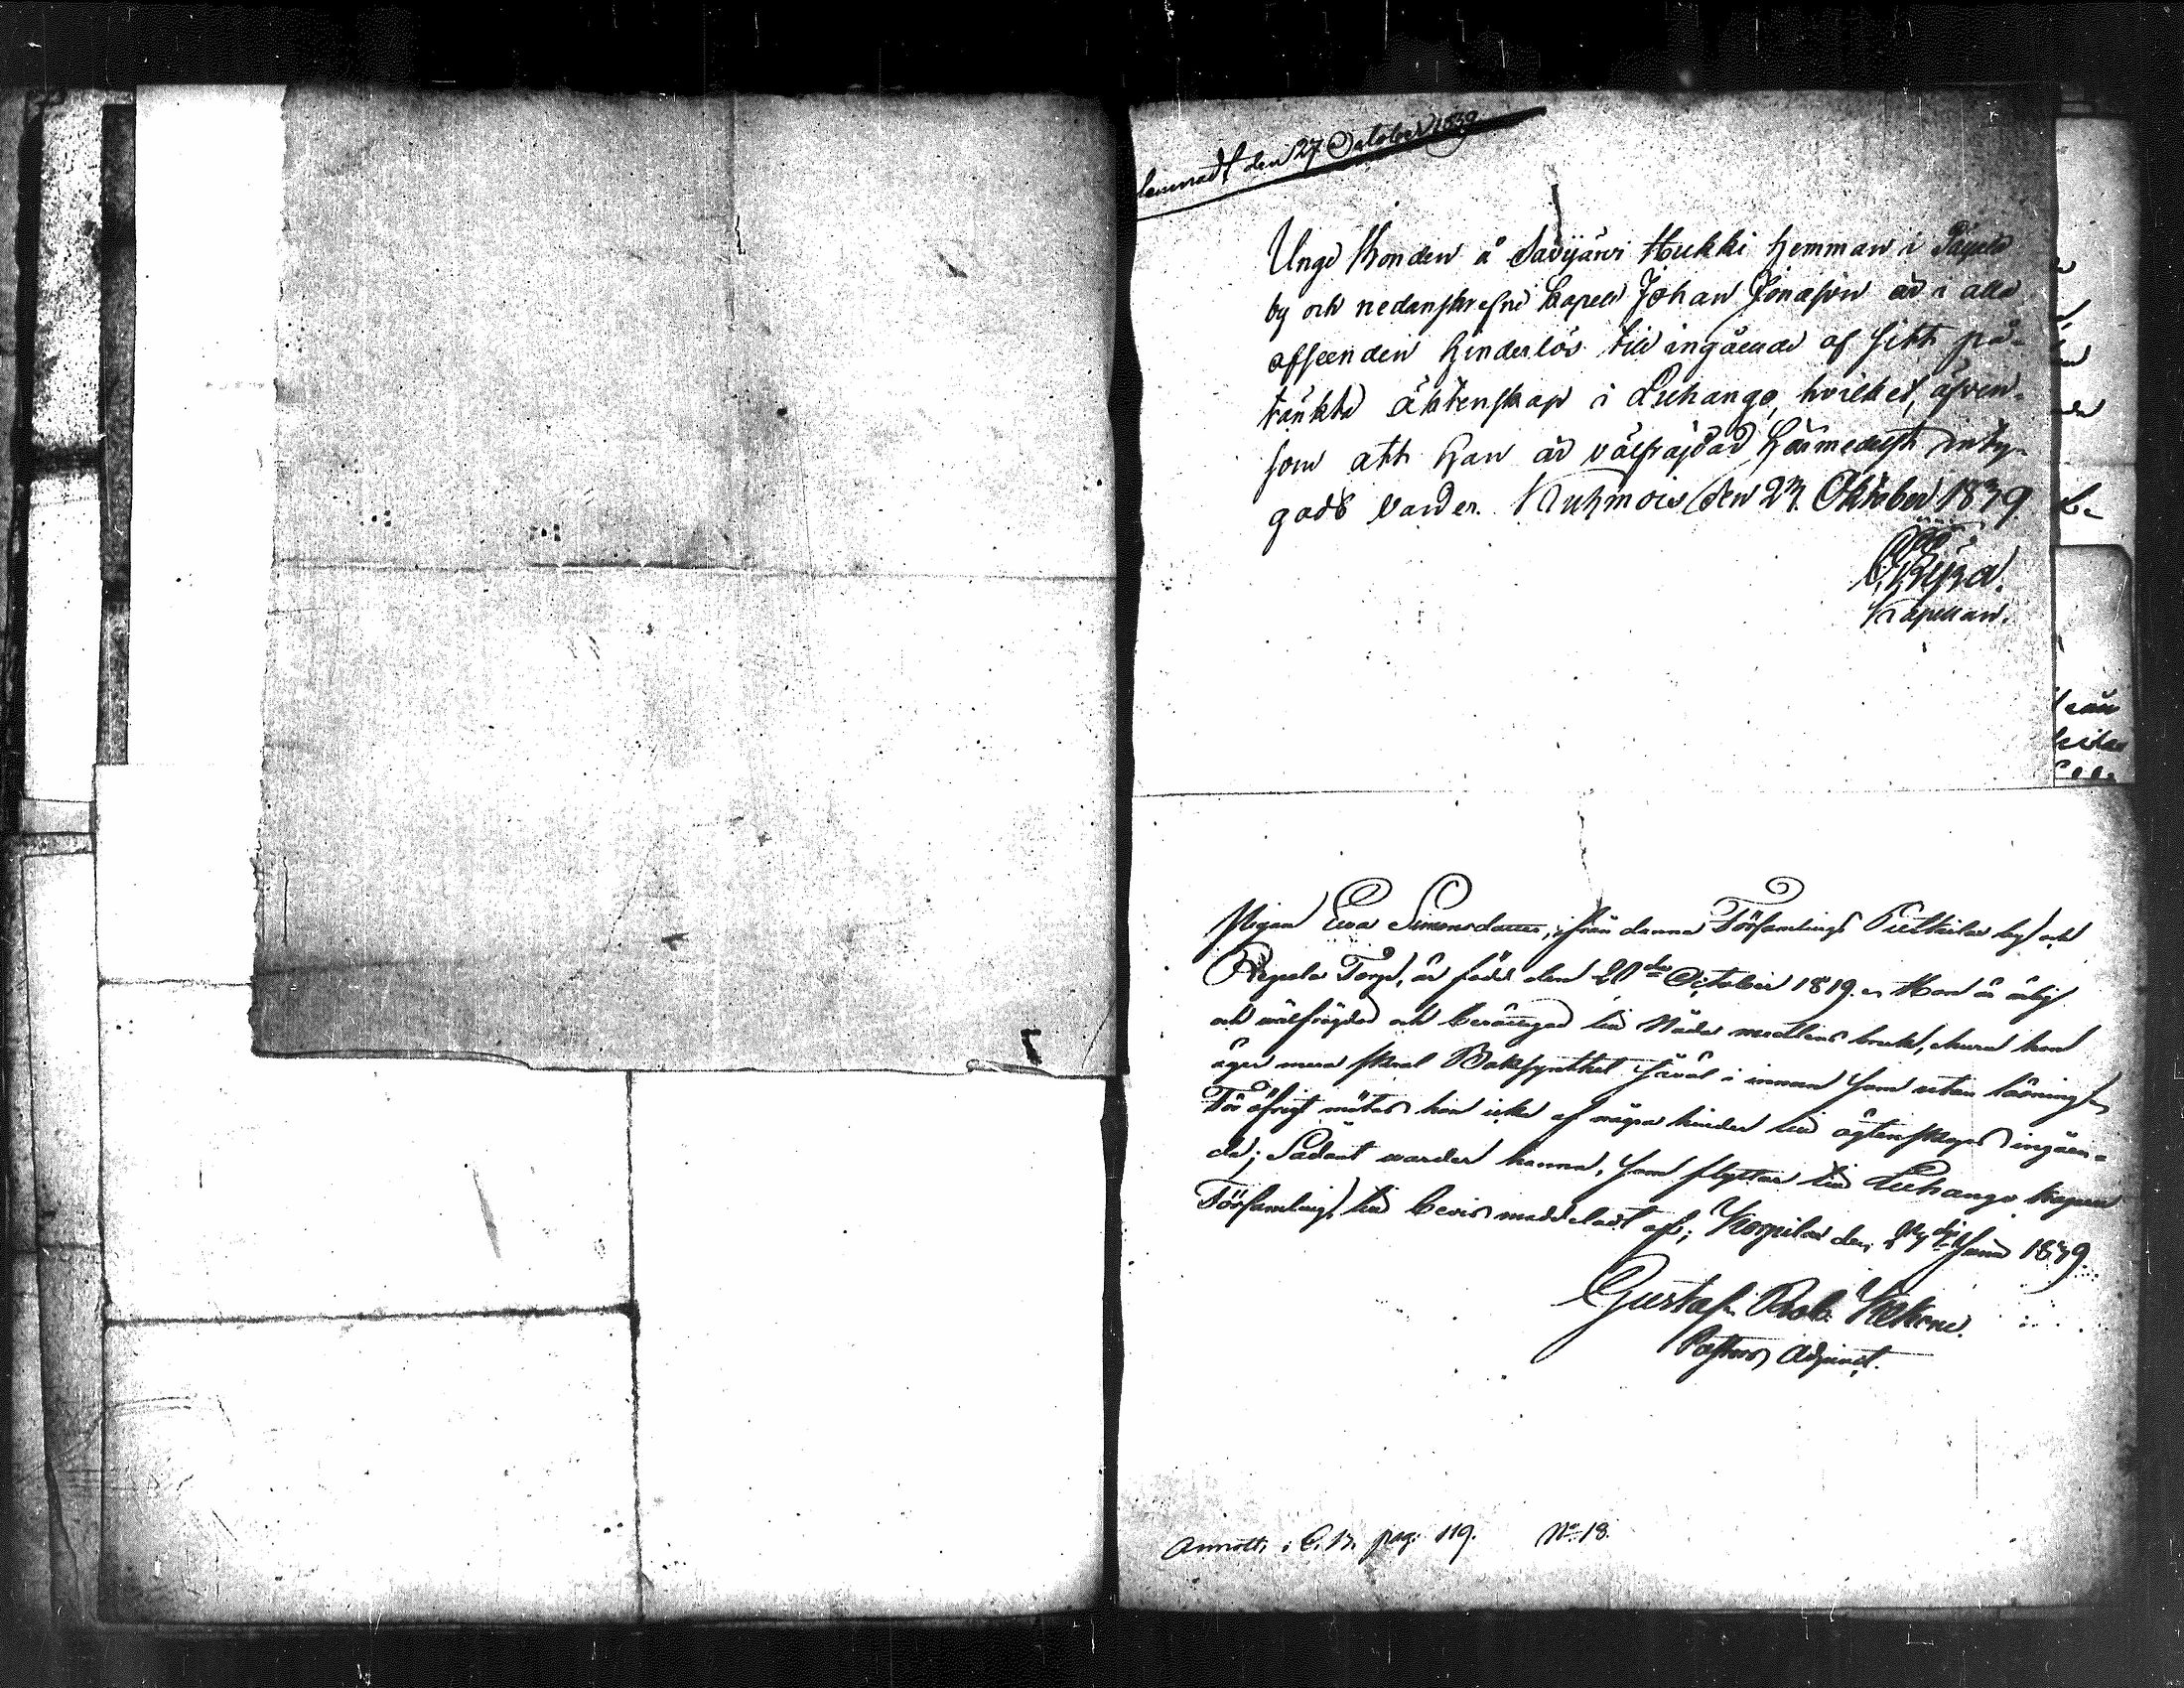 lemnadt den 27 October 1839.
Unge Bonden å Savijärvi Hukki hemman i Päjälä
by och nedanskrefne kapell Johan Jonasson är i alla
afseenden hinderlös till ingående af sitt på-
tänkta äktenskap i Luhango, hvilket, äfven-
som att han är välfräjdad härmedelst inty-
gads varder. Kuhmois den 27. Oktober 1839.
Kapellan.
Pigan Eva Simonsdotter, ifrån denna Församlings Puttoila by och
Torp, är född den 20de October 1819. Hon är ärlig
och wälfrägdad och berättigad till Nåde medlens bruk, ehuru hon
äger mera skral Boksynthet såväl i innan som utan läsning.
För öfrigt mötes hon icke af några hinder till ägtenskaps ingåen-
de; Sådant warder henne, som flyttar till Luhango kapell
Församling, till bevis meddeladt af; Korpilax den Junii 1839.
Gustaf
Pastors Adjunct.
Annott. i C.B. pag: 119. No 18.